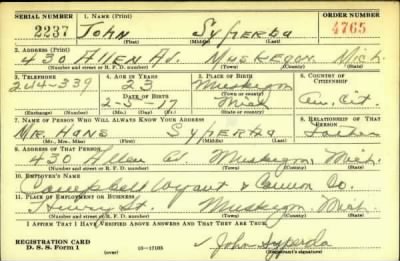 SERIAL NUMBER 1. NAME (Print) ORDER NUMBER
2237 John Syperda 4765
(First) (Middle) (Last)
2. ADDRESS (Print)
430 Allen Av. Muskegon Mich
(Number and street or R. F. D. number) (Town) (County) (State)
3. TELEPHONE 4. AGE IN YEARS 5. PLACE OF BIRTH 6. COUNTRY OF CITIZENSHIP
23 Muskegon
DATE OF BIRTH (Town or county)
24-339 2-5-17 Mich Am. Cit.
(Exchange) (Number) (Mo.) (Day) (Yr.) (State or country)
7. NAME OF PERSON WHO WILL ALWAYS KNOW YOUR ADDRESS 8. RELATIONSHIP OF THAT PERSON
Mr. Hans Syperda Father
(Mr., Mrs., Miss) (First) (Middle) (Last)
9. ADDRESS OF THAT PERSON
430 Allen Av Muskegon, Mich.
(Number and street or R. F. D. number) (Town) (County) (State)
10. EMPLOYER'S NAME
Campbell Wyant & Cannon Co.
11. PLACE OF EMPLOYMENT OR BUSINESS
Henry St. Muskegon Mich
(Number and street or R. F. D. number) (Town) (County) (State)
I AFFIRM THAT I HAVE VERIFIED ABOVE ANSWERS AND THAT THEY ARE TRUE.
REGISTRATION CARD
D. S. S. Form 1 (over) 16-17105 John Syperda
(Registrant's signature)